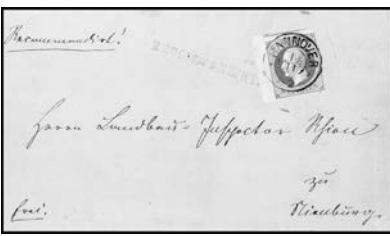 Recommandirt!
RECOMMANDIRT
HANNOVER
Herrn Landbau-Inspector
zu
Nienburg.
frei.